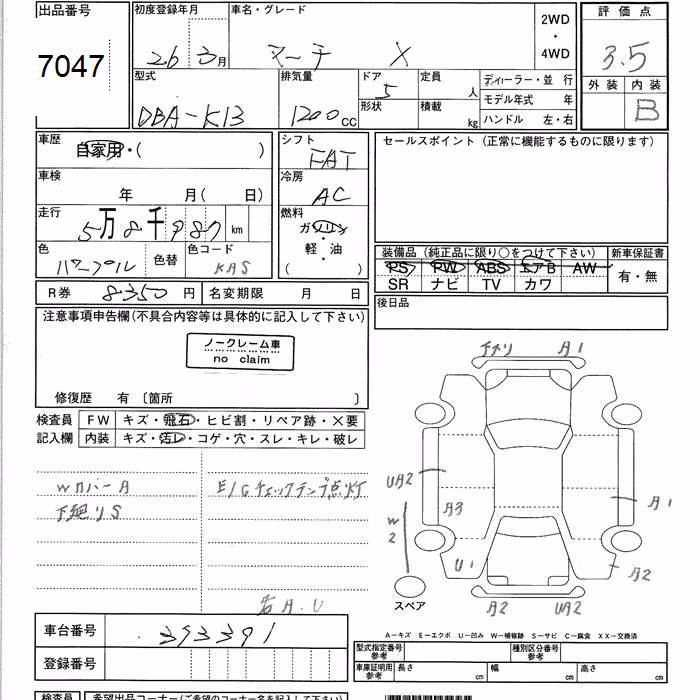 出品番号 初度登録年月 車名・グレード 2WD 評価点
7047 26年3月 マーチ X ・ 3.5
4WD 外装 内装
型式 排気量 ドア 定員 ディーラー・並行 B
DBA-K13 1200cc 5 人 モデル年式 年
形状 積載 kg ハンドル 左・右
車歴 シフト セールスポイント(正常に機能するものに限ります)
自家用・( ) FAT
車検 冷房
年 月( 日) AC
走行 燃料
5万8千987km ガソリン
・
色 色替 色コード 軽・油 装備品(純正品に限り○をつけて下さい) 新車保証書
パープル KAS ( ) PS PW ABS エアB AW 有・無
R券 8350円 名変期限 月 日 SR ナビ TV カワ
注意事項申告欄(不具合内容等は具体的に記入して下さい) 後日品
ノークレーム車
no claim
修復歴 有 〔箇所 〕
検査員 FW キズ・飛石・ヒビ割・リペア跡・X要
記入欄 内装 キズ・汚レ・コゲ・穴・スレ・キレ・破レ
WカバーA E/Gチェックランプ点灯
下廻りS
右A.U
A1
UA2 A1
A3
W2
U1 A2
スペア A2 UA2
車台番号 393391 A-キズ E-エクボ U-凹み W-補修跡 S-サビ C-腐食 XX-交換済
登録番号 型式指定番号 参考 種別区分番号 参考
車庫証明用 参考 長さ cm 幅 cm 高さ cm
検査員 希望出品コーナー(ご希望のコーナー名を記入して下さい)